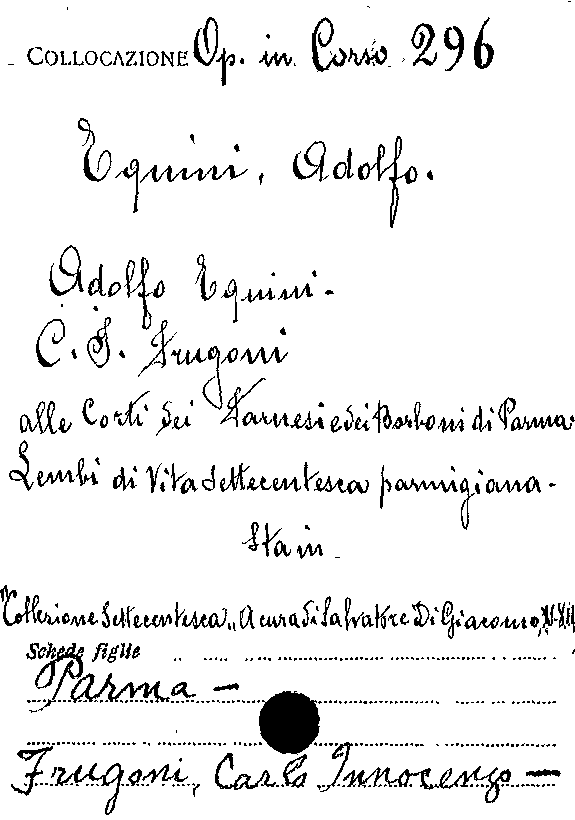 COLLOCAZIONE Op. in Corso 296
Equini, Adolfo.
Adolfo Equini.
C. I. Frugoni
alle Corti dei Farnesi e dei Borboni di Parma.
Lembi di Vita settecentesca parmigiana.
Sta in
"Collezione settecentesca" A cura di Salvatore Di Giacomo, N. XII
Schede figlie
Parma —
Frugoni, Carlo Innocenzo —